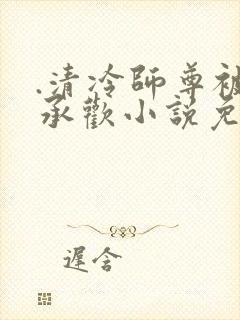 .清冷師尊被
承歡小說免
遲含